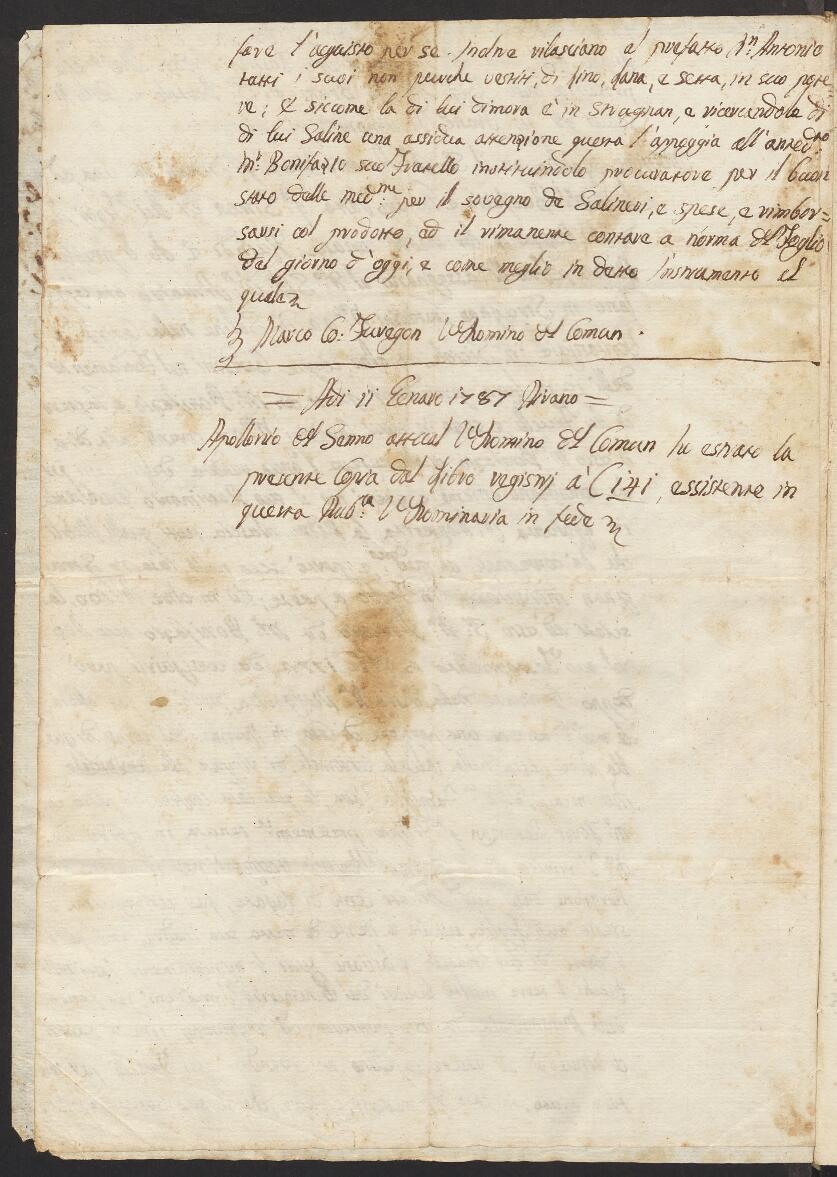 fare l'aquisto per se. Inoltre rilasciano al prefatto Sn: Antonio
tutti i suoi non poche vestiti, di lino, lana, e setta, in suo pote
re; Et siccome la di lui dimora è in Strugnan, e ricercandole di
di lui Saline una assidua attenzione questa l'appoggia all'anted:to
Mr: Bonifazio suo Fratello instituindolo procuratore per il buon
stato delle med:me per il sovegno de Salineri, e spese, e rimbor=
sarsi col prodotto, ed il rimanente contare a norma del Foglio
del giorno d'oggi, e come meglio in detto Instrumento el
quale
Marco Co: Furegon VceDomino del Comun.
= Adi 11 Genaro 1787 Pirano =
Apollonio del Senno attual VceDomino del Comun hà estrato la
presente Copia dal Libro registri a C 141, essistente in
questa Pub:ca VceDominaria in fede